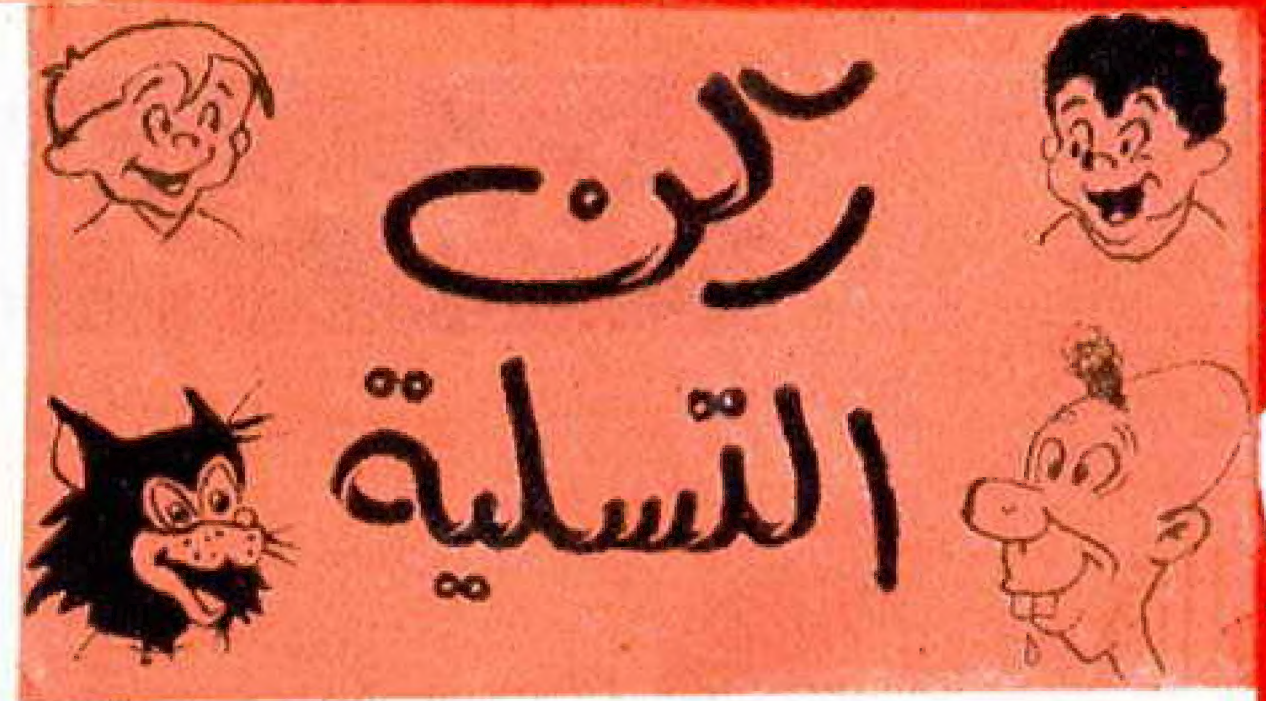 ركن
التسلية